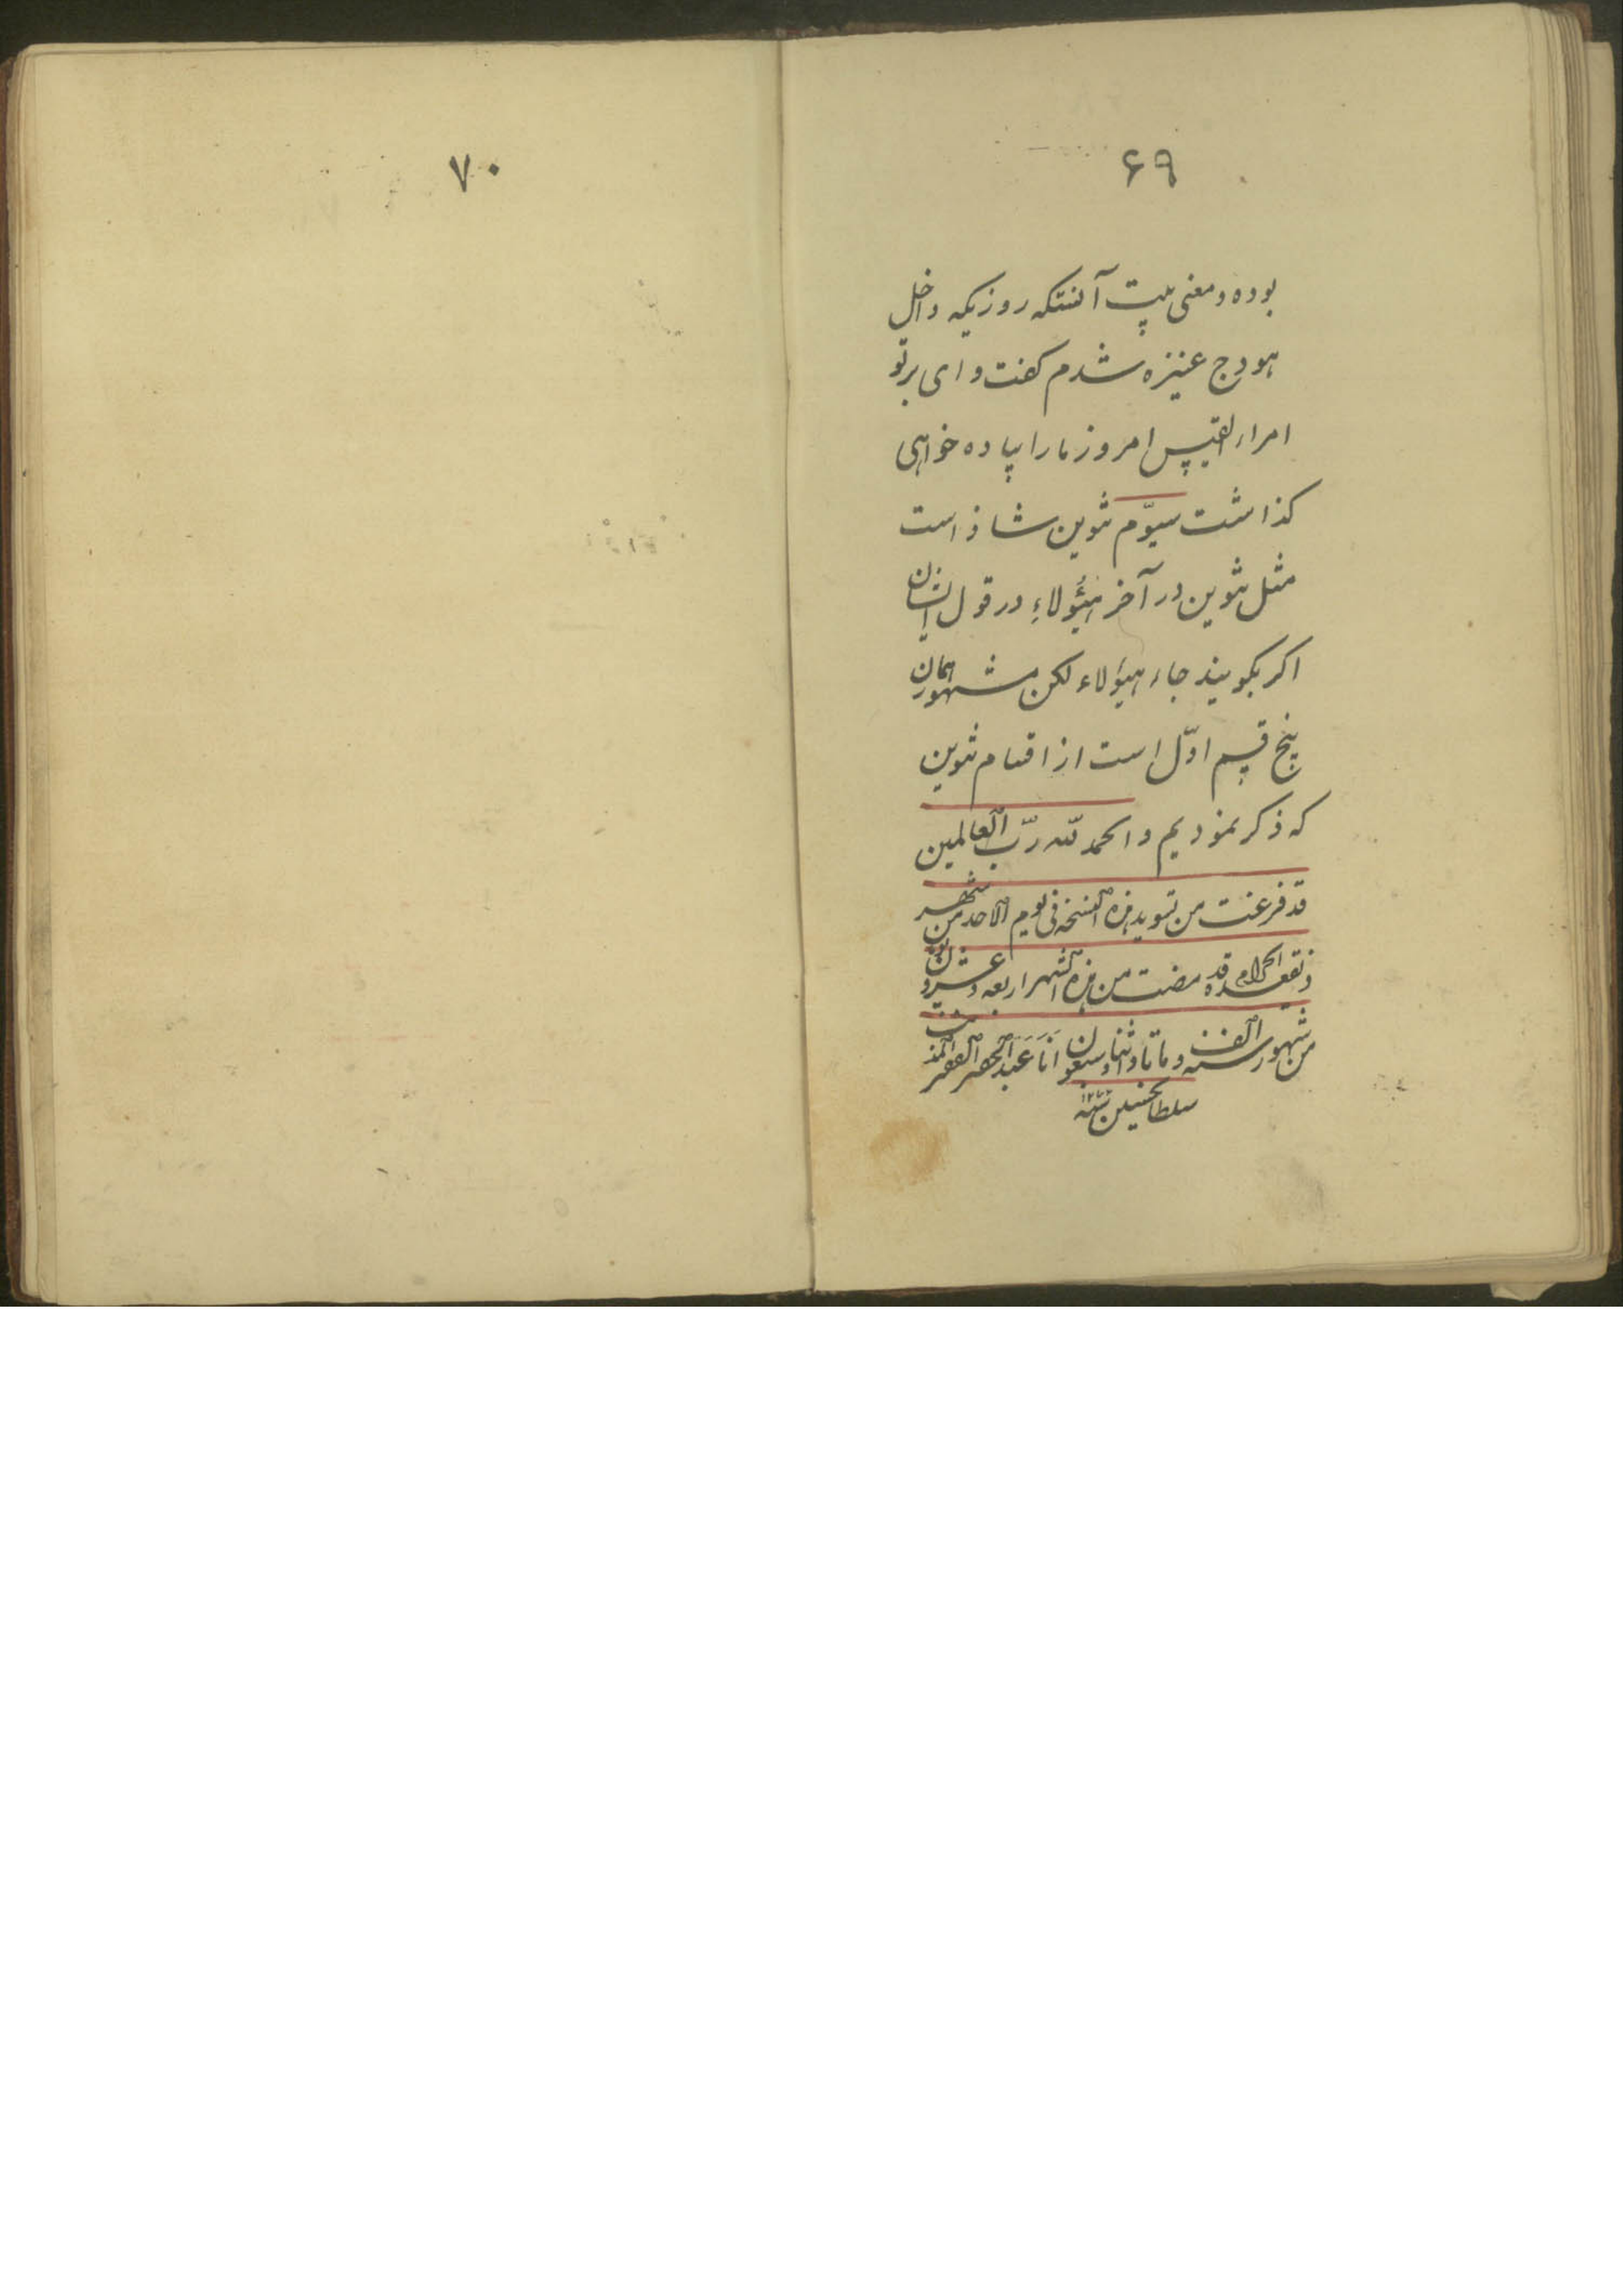 ۶۹
بوده و معنی بیت آنستکه روزیکه داخل
هودج عنیزه شدم کفت وای بر تو
امراء القیس امروز ما را پیاده خواهی
کذاشت سیوّم تنوین شاذ است
مثل تنوین در آخر هؤلاءِ در قول ایشان
اکر بکویند جاء هؤلاء لکن مشهور همان
پنج قسم اوّل است از اقسام تنوین
که ذکر نمودیم و الحمد للّه ربّ العالمین
قد فرغت من تسوید هذه النسخه فی یوم الاحد من شهر
ذیقعده الحرام قد مضت من هذه الشهر اربعه و عشرون
من شهور سنه الف و ماتا و اثنا و سبعون انا عبد الحقیر الفقیر المذنب
سلطانحسین سنه ۱۲۷۲
۷۰